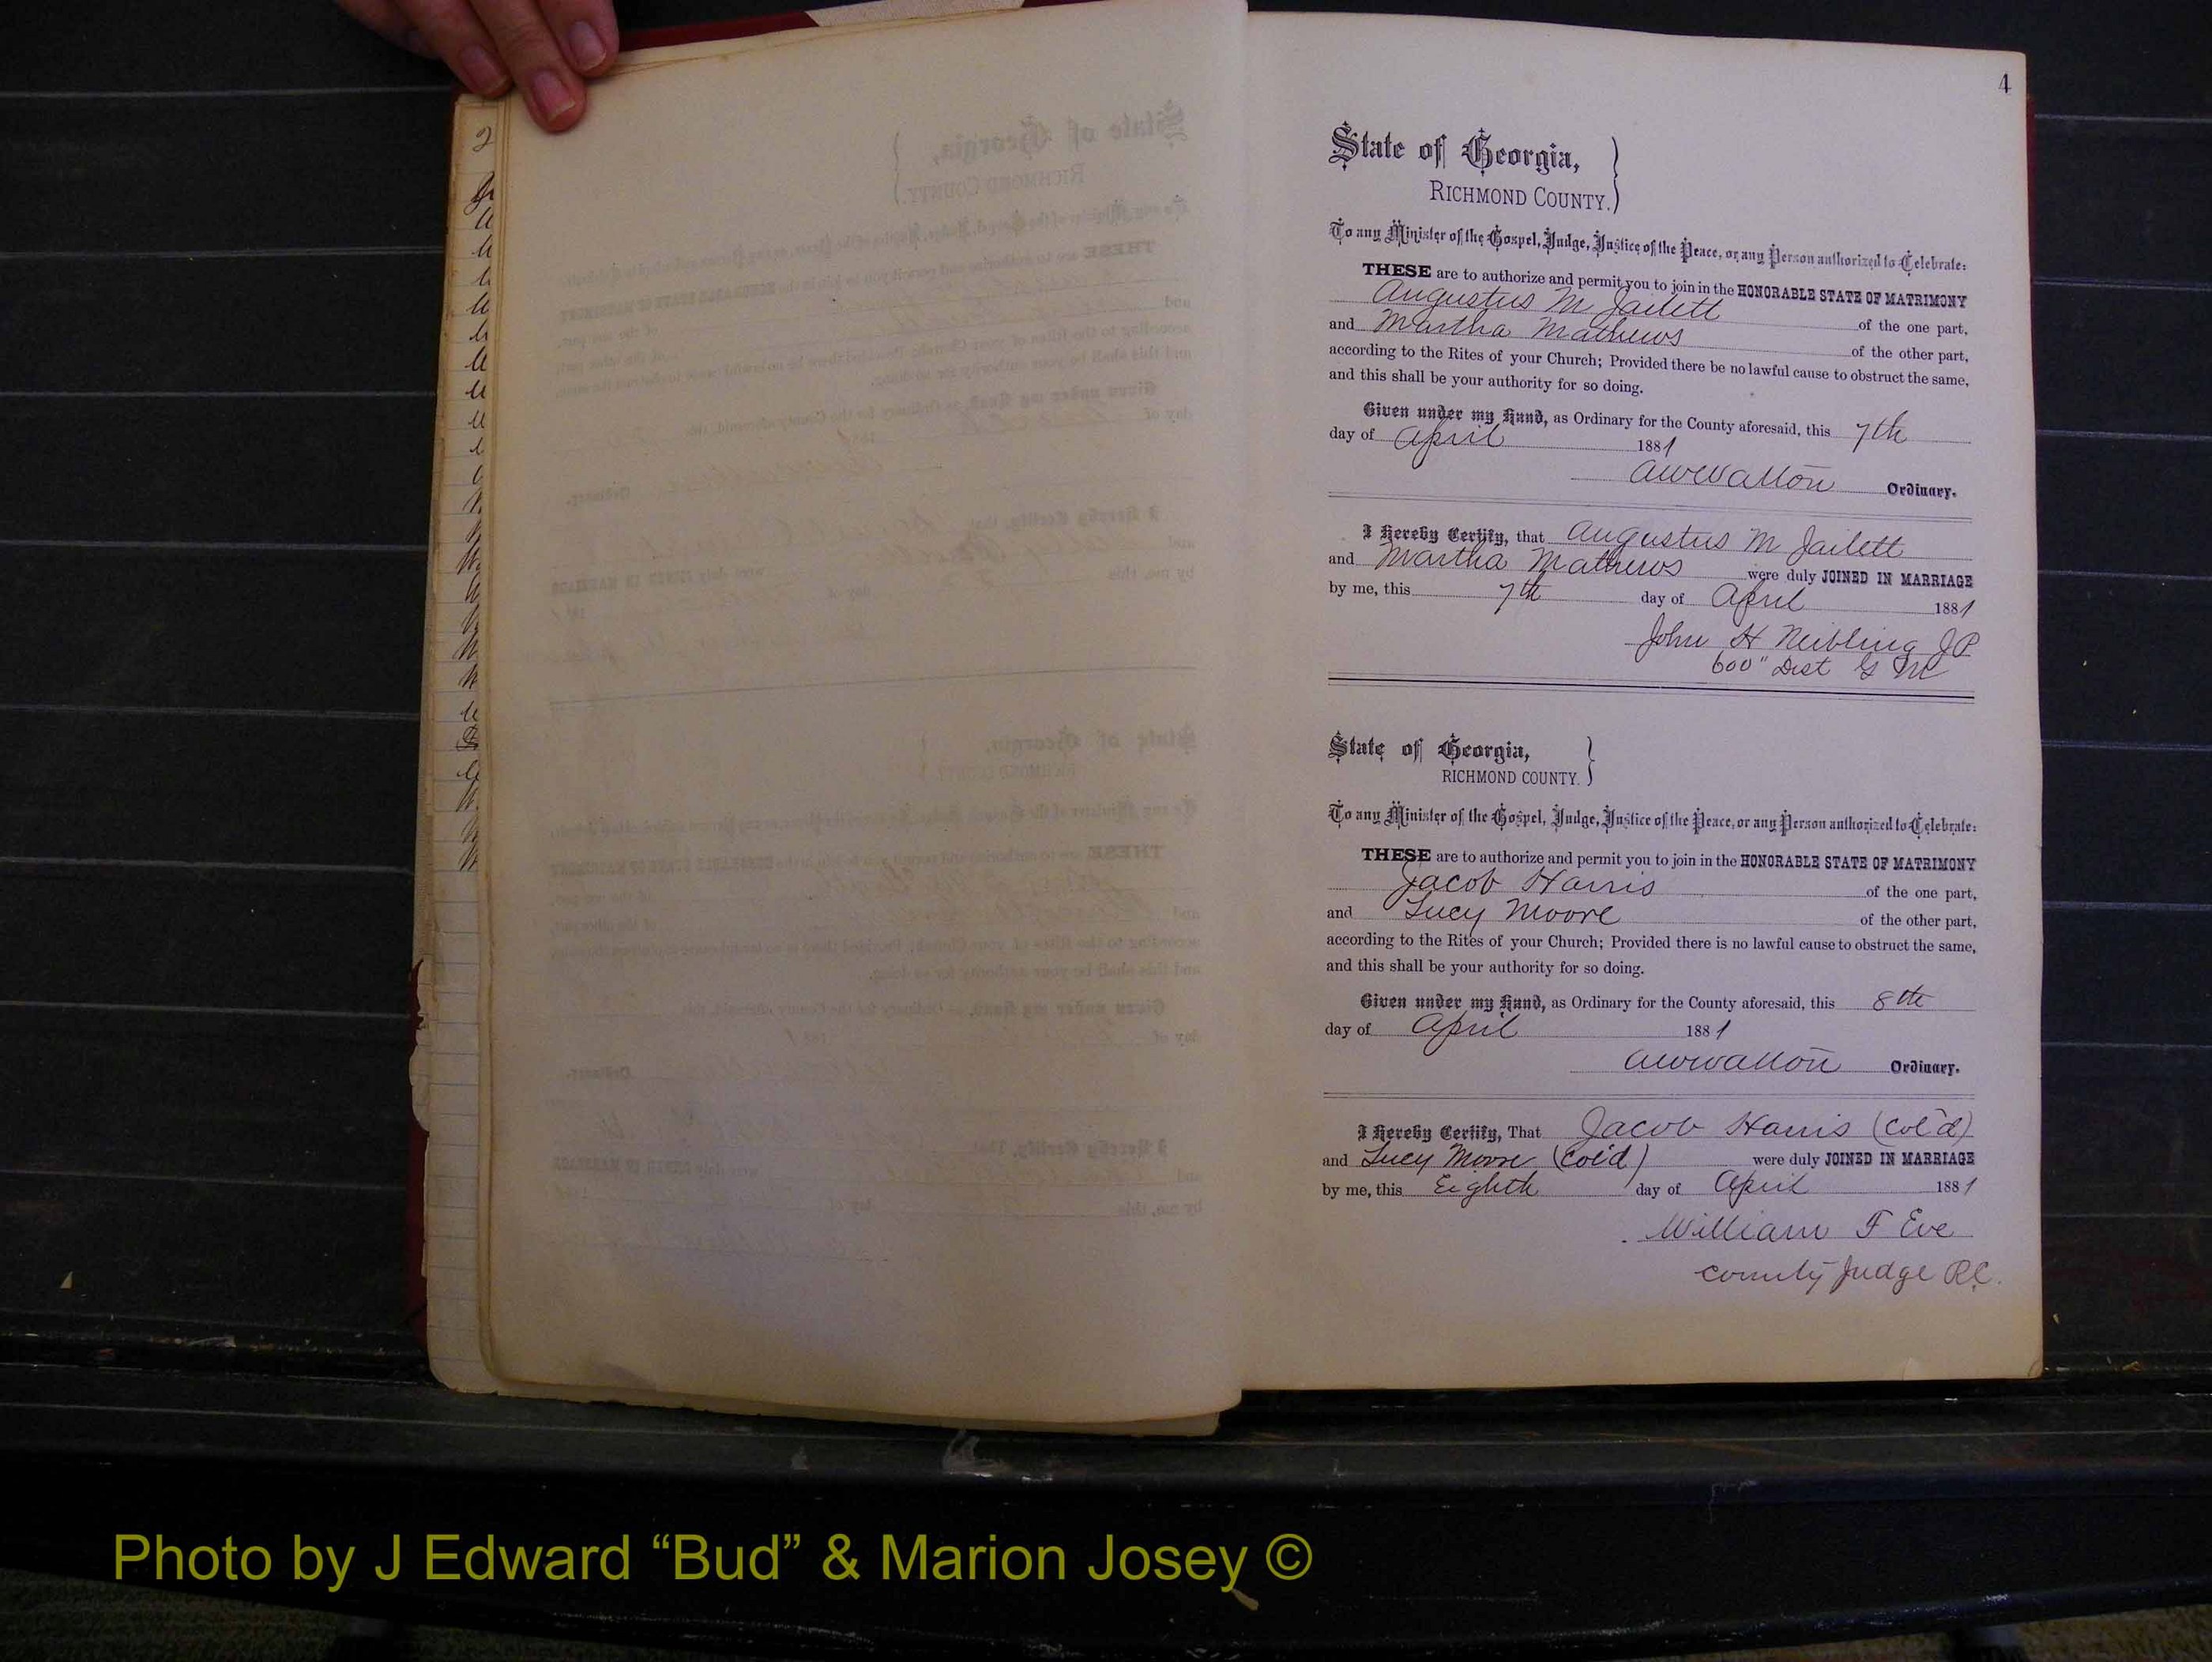 4
State of Georgia,
RICHMOND COUNTY.
To any Minister of the Gospel, Judge, Justice of the Peace, or any Person authorized to Celebrate:
THESE are to authorize and permit you to join in the HONORABLE STATE OF MATRIMONY
Augustus M Jailett of the one part,
and Martha Mathews of the other part,
according to the Rites of your Church; Provided there be no lawful cause to obstruct the same,
and this shall be your authority for so doing.
Given under my Hand, as Ordinary for the County aforesaid, this 7th
day of April 1881
AWWalton Ordinary.
I Hereby Certify, that Augustus M Jailett
and Martha Mathews were duly JOINED IN MARRIAGE
by me, this 7th day of April 1881
John H Neibling JP
600" Dist G M
State of Georgia,
RICHMOND COUNTY.
To any Minister of the Gospel, Judge, Justice of the Peace, or any Person authorized to Celebrate:
THESE are to authorize and permit you to join in the HONORABLE STATE OF MATRIMONY
Jacob Harris of the one part,
and Lucy Moore of the other part,
according to the Rites of your Church; Provided there is no lawful cause to obstruct the same,
and this shall be your authority for so doing.
Given under my Hand, as Ordinary for the County aforesaid, this 8th
day of April 1881
AWWalton Ordinary.
I Hereby Certify, That Jacob Harris (Col'd)
and Lucy Moore (Col'd) were duly JOINED IN MARRIAGE
by me, this Eighth day of April 1881
William F Eve
County Judge R.C.
Photo by J Edward “Bud” & Marion Josey ©